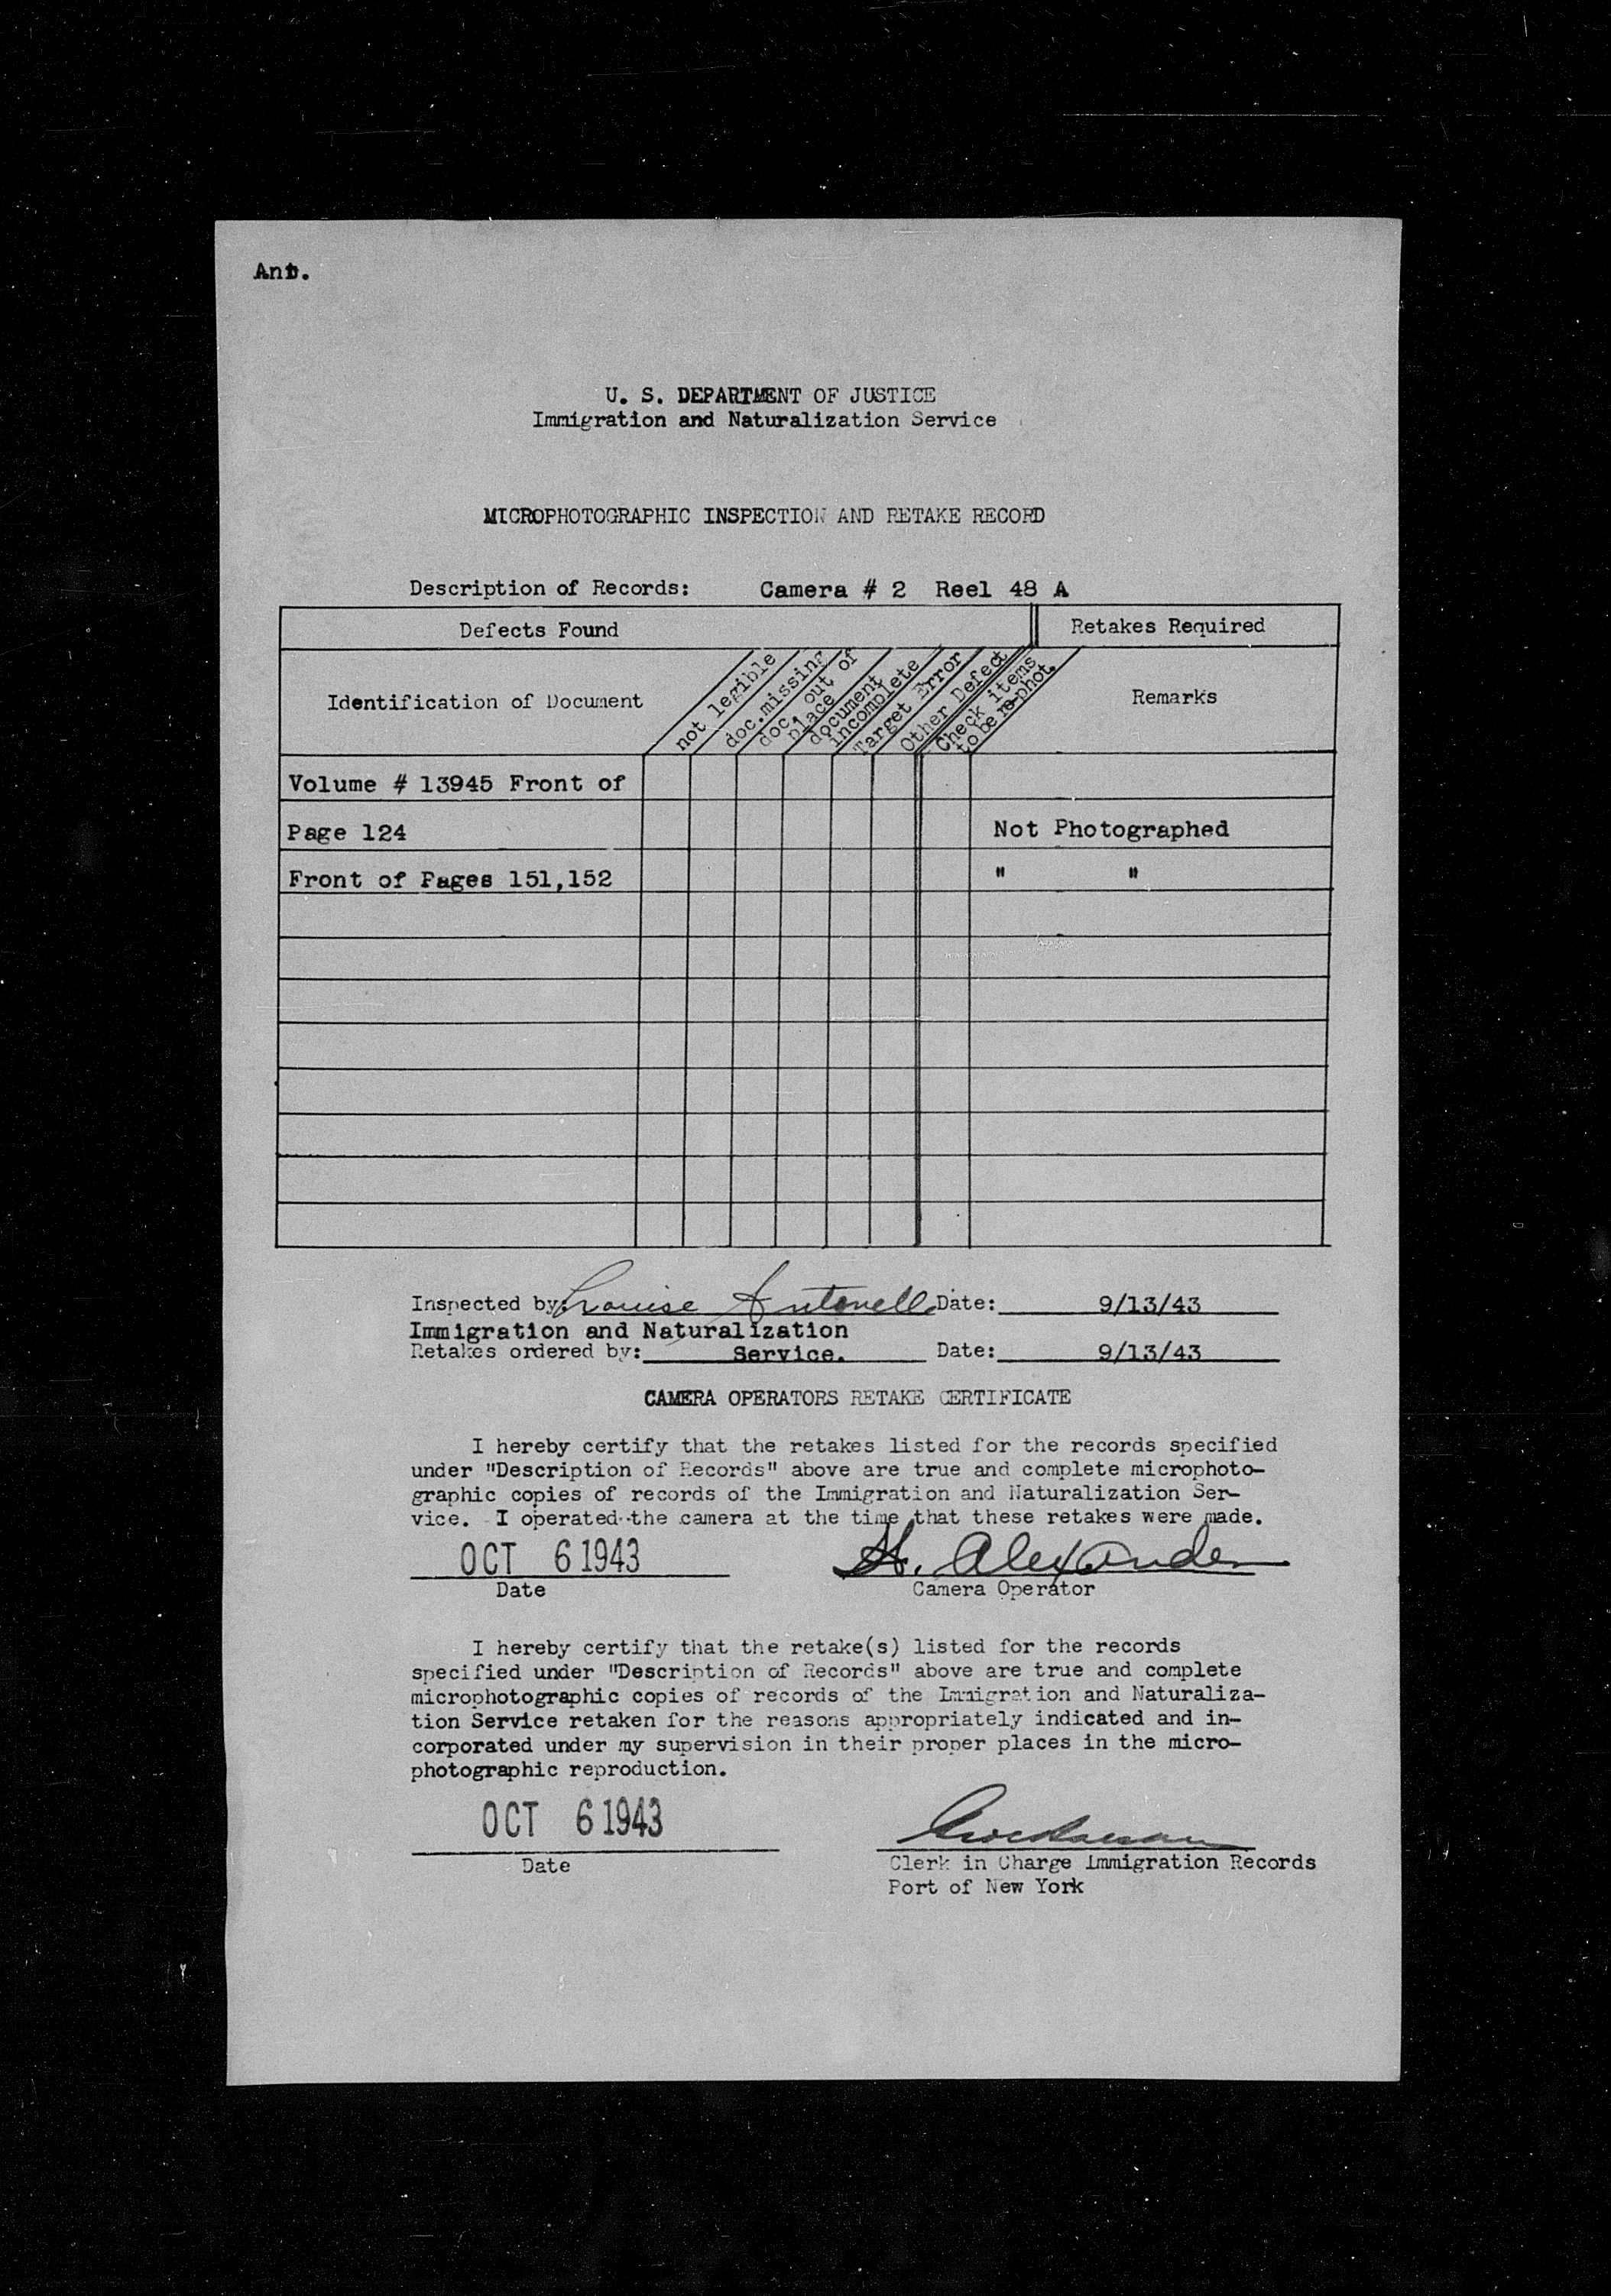 Ant.
U. S. DEPARTMENT OF JUSTICE
Immigration and Naturalization Service
MICROPHOTOGRAPHIC INSPECTION AND RETAKE RECORD
Description of Records: Camera # 2 Reel 48 A
Defects Found
Retakes Required
Identification of Document
not legible
doc.missing
doc. out of
place
document
incomplete
Target Error
Other Defect
Check items
to be re-phot.
Remarks
Volume # 13945 Front of
Page 124 Not Photographed
Front of Pages 151,152 " "
Inspected by: Louise Antonelli Date: 9/13/43
Immigration and Naturalization
Retakes ordered by: Service. Date: 9/13/43
CAMERA OPERATORS RETAKE CERTIFICATE
I hereby certify that the retakes listed for the records specified
under "Description of Records" above are true and complete microphoto-
graphic copies of records of the Immigration and Naturalization Ser-
vice. I operated the camera at the time that these retakes were made.
OCT 6 1943 H. Alexander
Date Camera Operator
I hereby certify that the retake(s) listed for the records
specified under "Description of Records" above are true and complete
microphotographic copies of records of the Immigration and Naturaliza-
tion Service retaken for the reasons appropriately indicated and in-
corporated under my supervision in their proper places in the micro-
photographic reproduction.
OCT 6 1943
Date
Clerk in Charge Immigration Records
Port of New York